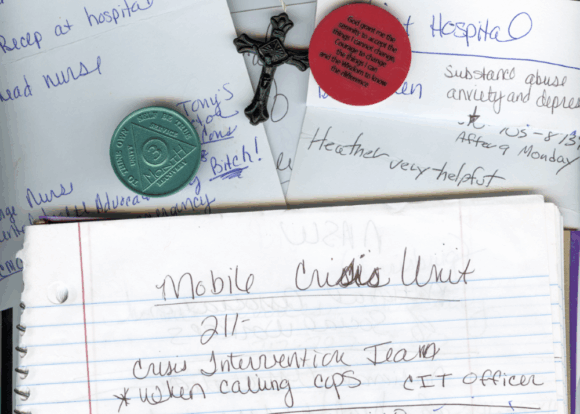 Recep at hospital
ead nurse
Tony's
Bitch!
Nurse
TO THINE OWN SELF BE TRUE
UNITY
SERVICE
RECOVERY
3
MONTH
God grant me the
serenity to accept the
things I cannot change,
Courage to change
the things I can
and the Wisdom to know
the difference
t Hospital
Substance abuse
anxiety and depres
After 9 Monday
Heather very helpful
Mobile Crisis Unit
211-
Crisis Intervention Team
*When calling cops CIT Officer